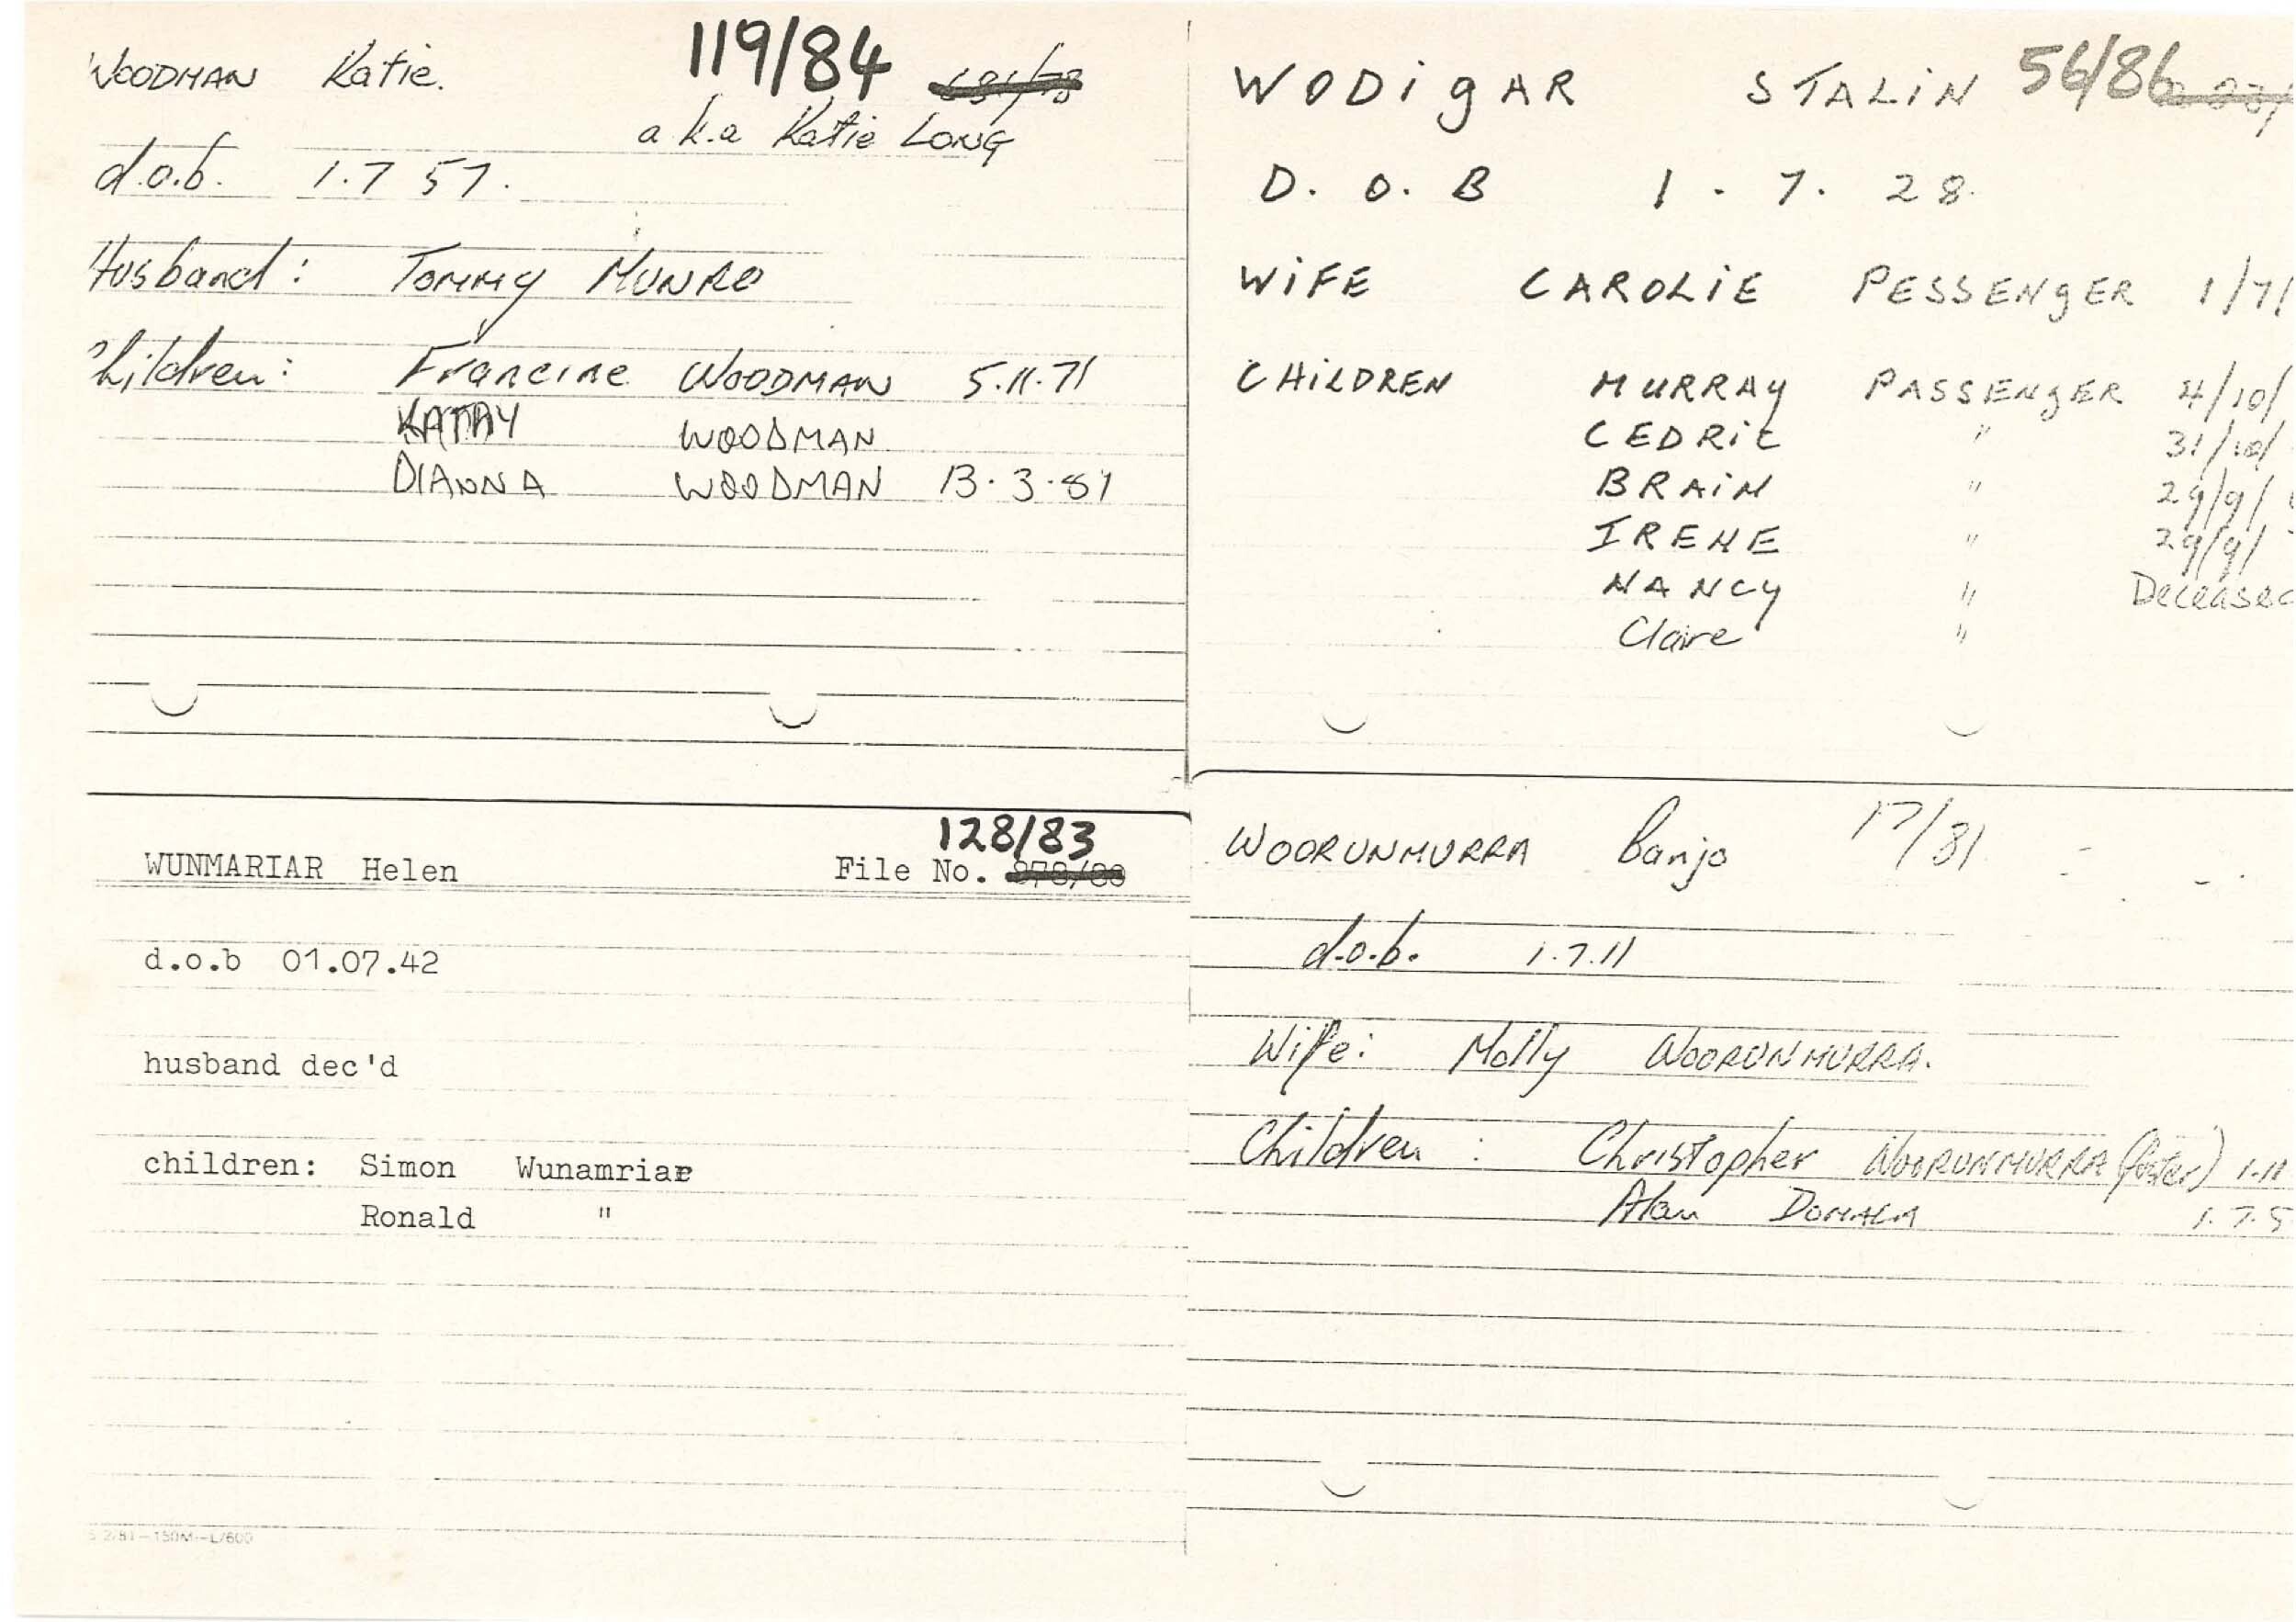 WOODMAN Katie. 119/84
a.k.a Katie LONG
d.o.b. 1.7 57.
Husband: Tommy MUNRO
Children: Francine WOODMAN 5.11.71
KATHY WOODMAN
DIANNA WOODMAN 13.3.81
WODIgAR STALIN 56/86
D.O.B 1.7.28.
WIFE CAROLIE PESSENgER 1/7/
CHILDREN MURRAY PASSENgER 4/10/
CEDRIC " 31/10/
BRAIN " 29/9/
IRENE " 29/9/
NANCY " Deceased
Claire "
128/83
WUNMARIAR Helen File No.
d.o.b 01.07.42
husband dec'd
children: Simon Wunamriar
Ronald "
WOORUNMURRA Banjo 17/81
d.o.b. 1.7.11
Wife: Molly WOORUNMURRA.
Children: Christopher WOORUNMURRA (foster) 1.11
Alan DOMALA 1.7.5